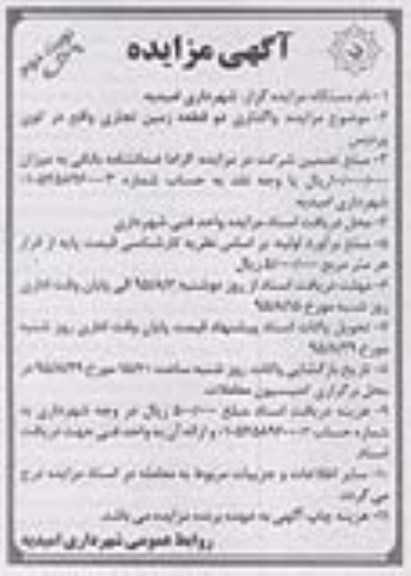 آگهی مزایده
نوبت دوم
۱- نام دستگاه مزایده گزار: شهرداری امیدیه
۲- موضوع مزایده: واگذاری دو قطعه زمین تجاری واقع در کوی
پردیس
۳- مبلغ تضمین شرکت در مزایده: الزاما ضمانتنامه بانکی به میزان
ریال یا وجه نقد به حساب شماره
شهرداری امیدیه
۴- محل دریافت اسناد مزایده واحد فنی شهرداری
۵- مبلغ برآورد اولیه: بر اساس نظریه کارشناسی قیمت پایه از قرار
هر متر مربع ریال
۶- مهلت دریافت اسناد از روز دوشنبه ۹۵/۸/۳ الی پایان وقت اداری
روز شنبه مورخ ۹۵/۸/۱۵
۷- تحویل پاکات اسناد پیشنهاد قیمت پایان وقت اداری روز شنبه
مورخ ۹۵/۸/۲۹
۸- تاریخ بازگشایی پاکات روز شنبه ساعت مورخ ۹۵/۸/۲۹ در
محل برگزاری کمیسیون معاملات
۹- هزینه دریافت اسناد مبلغ ریال در وجه شهرداری به
شماره حساب و ارائه آن به واحد فنی جهت دریافت
اسناد
۱۰- سایر اطلاعات و جزییات مربوط به معامله در اسناد مزایده درج
می گردد
۱۱- هزینه چاپ آگهی به عهده برنده مزایده می باشد.
روابط عمومی شهرداری امیدیه